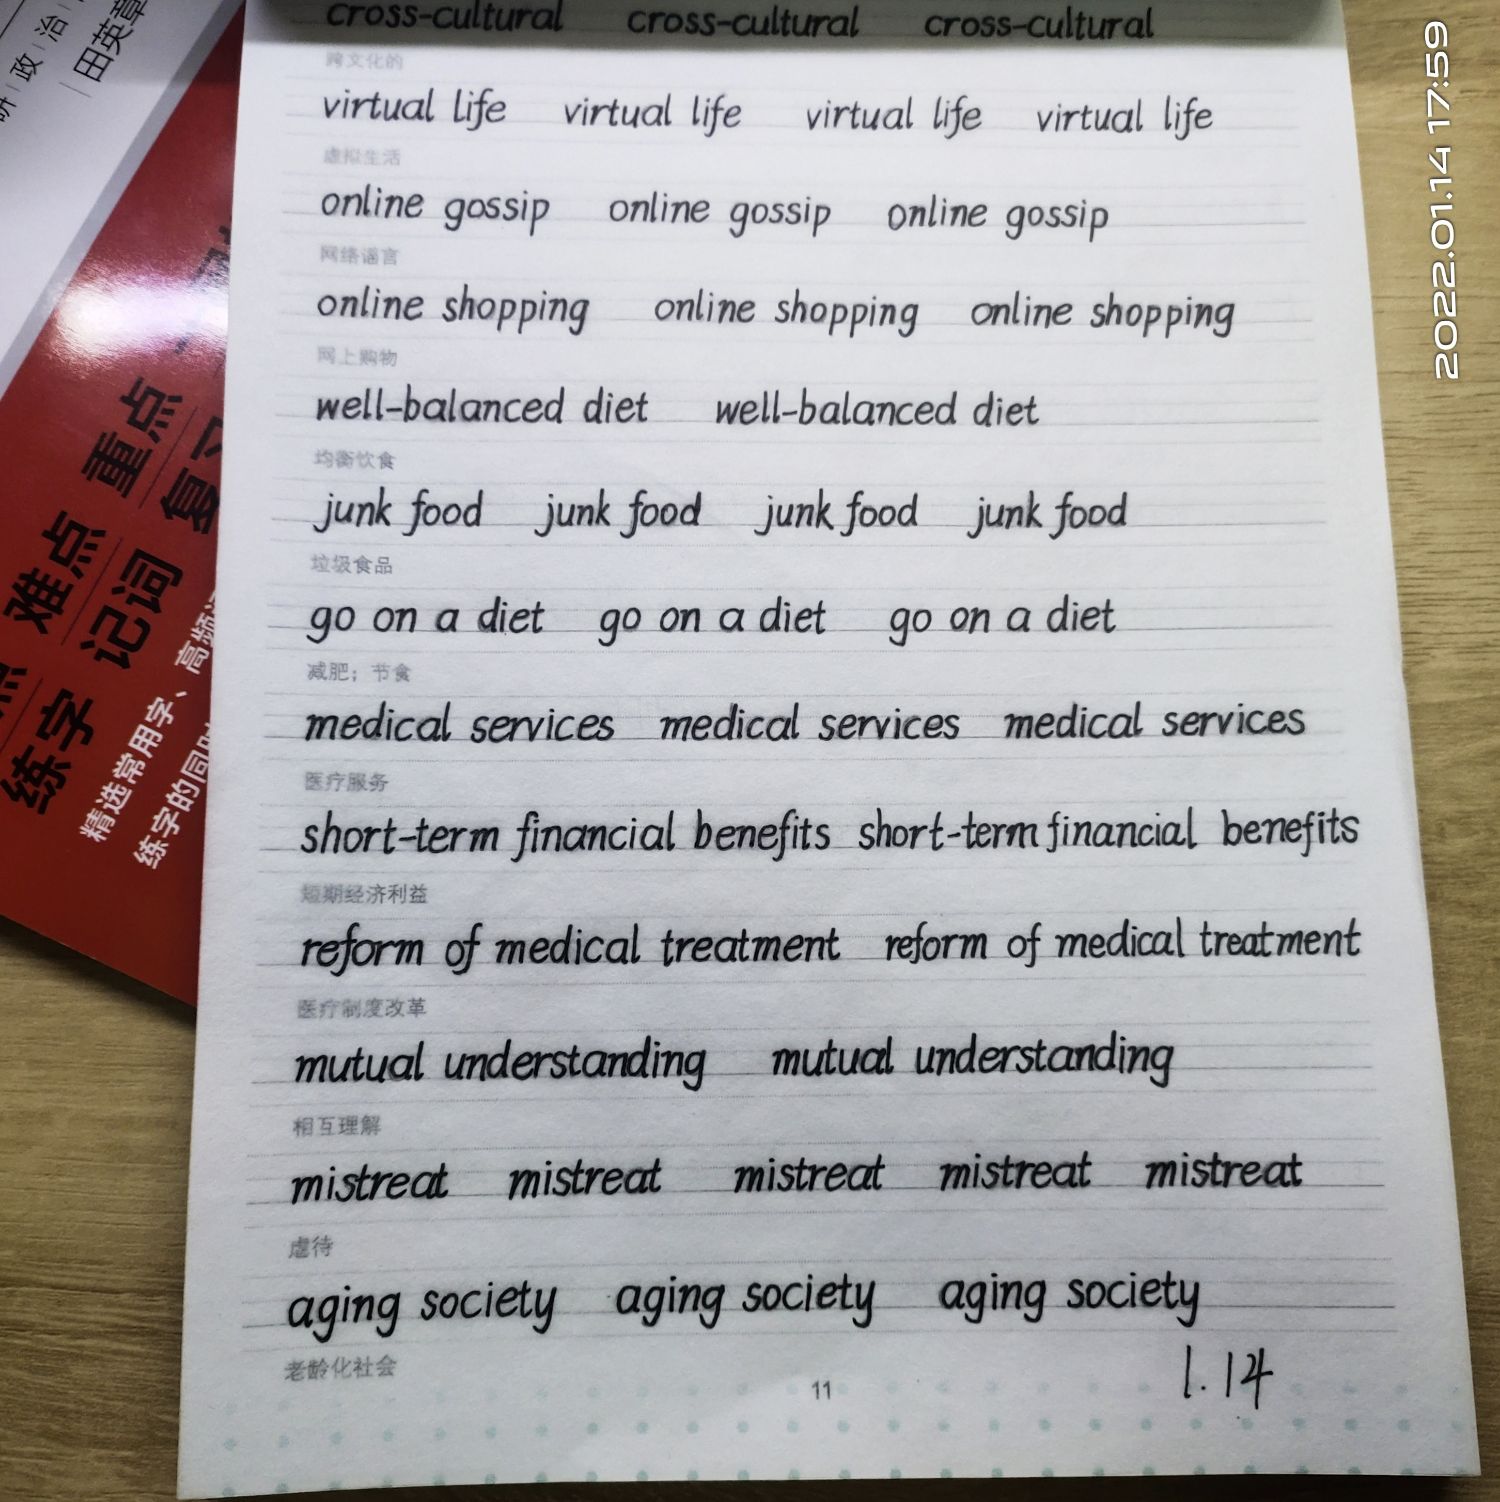 cross-cultural cross-cultural cross-cultural
跨文化的
virtual life virtual life virtual life virtual life
虚拟生活
online gossip online gossip online gossip
网络谣言
online shopping online shopping online shopping
网上购物
well-balanced diet well-balanced diet
均衡饮食
junk food junk food junk food junk food
垃圾食品
go on a diet go on a diet go on a diet
减肥；节食
medical services medical services medical services
医疗服务
short-term financial benefits short-term financial benefits
短期经济利益
reform of medical treatment reform of medical treatment
医疗制度改革
mutual understanding mutual understanding
相互理解
mistreat mistreat mistreat mistreat mistreat
虐待
aging society aging society aging society
老龄化社会
11
1.14
2022.01.14 17:59
研|政|治|
|田英章
重点
难点
复习
记词
练字
精选常用字、高频
练字的同时